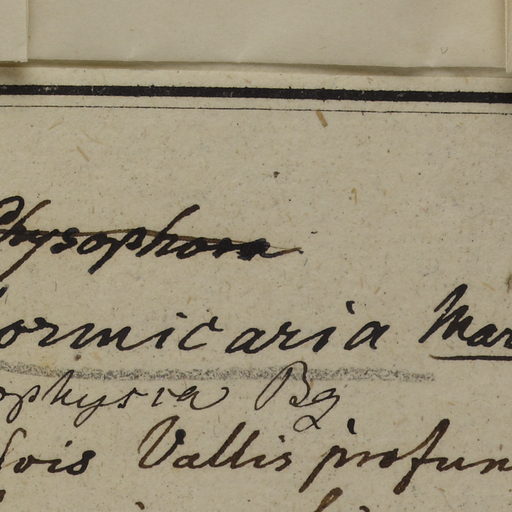 Physophora
ormicaria Mar
ophysia Bg
lois Vallis profun